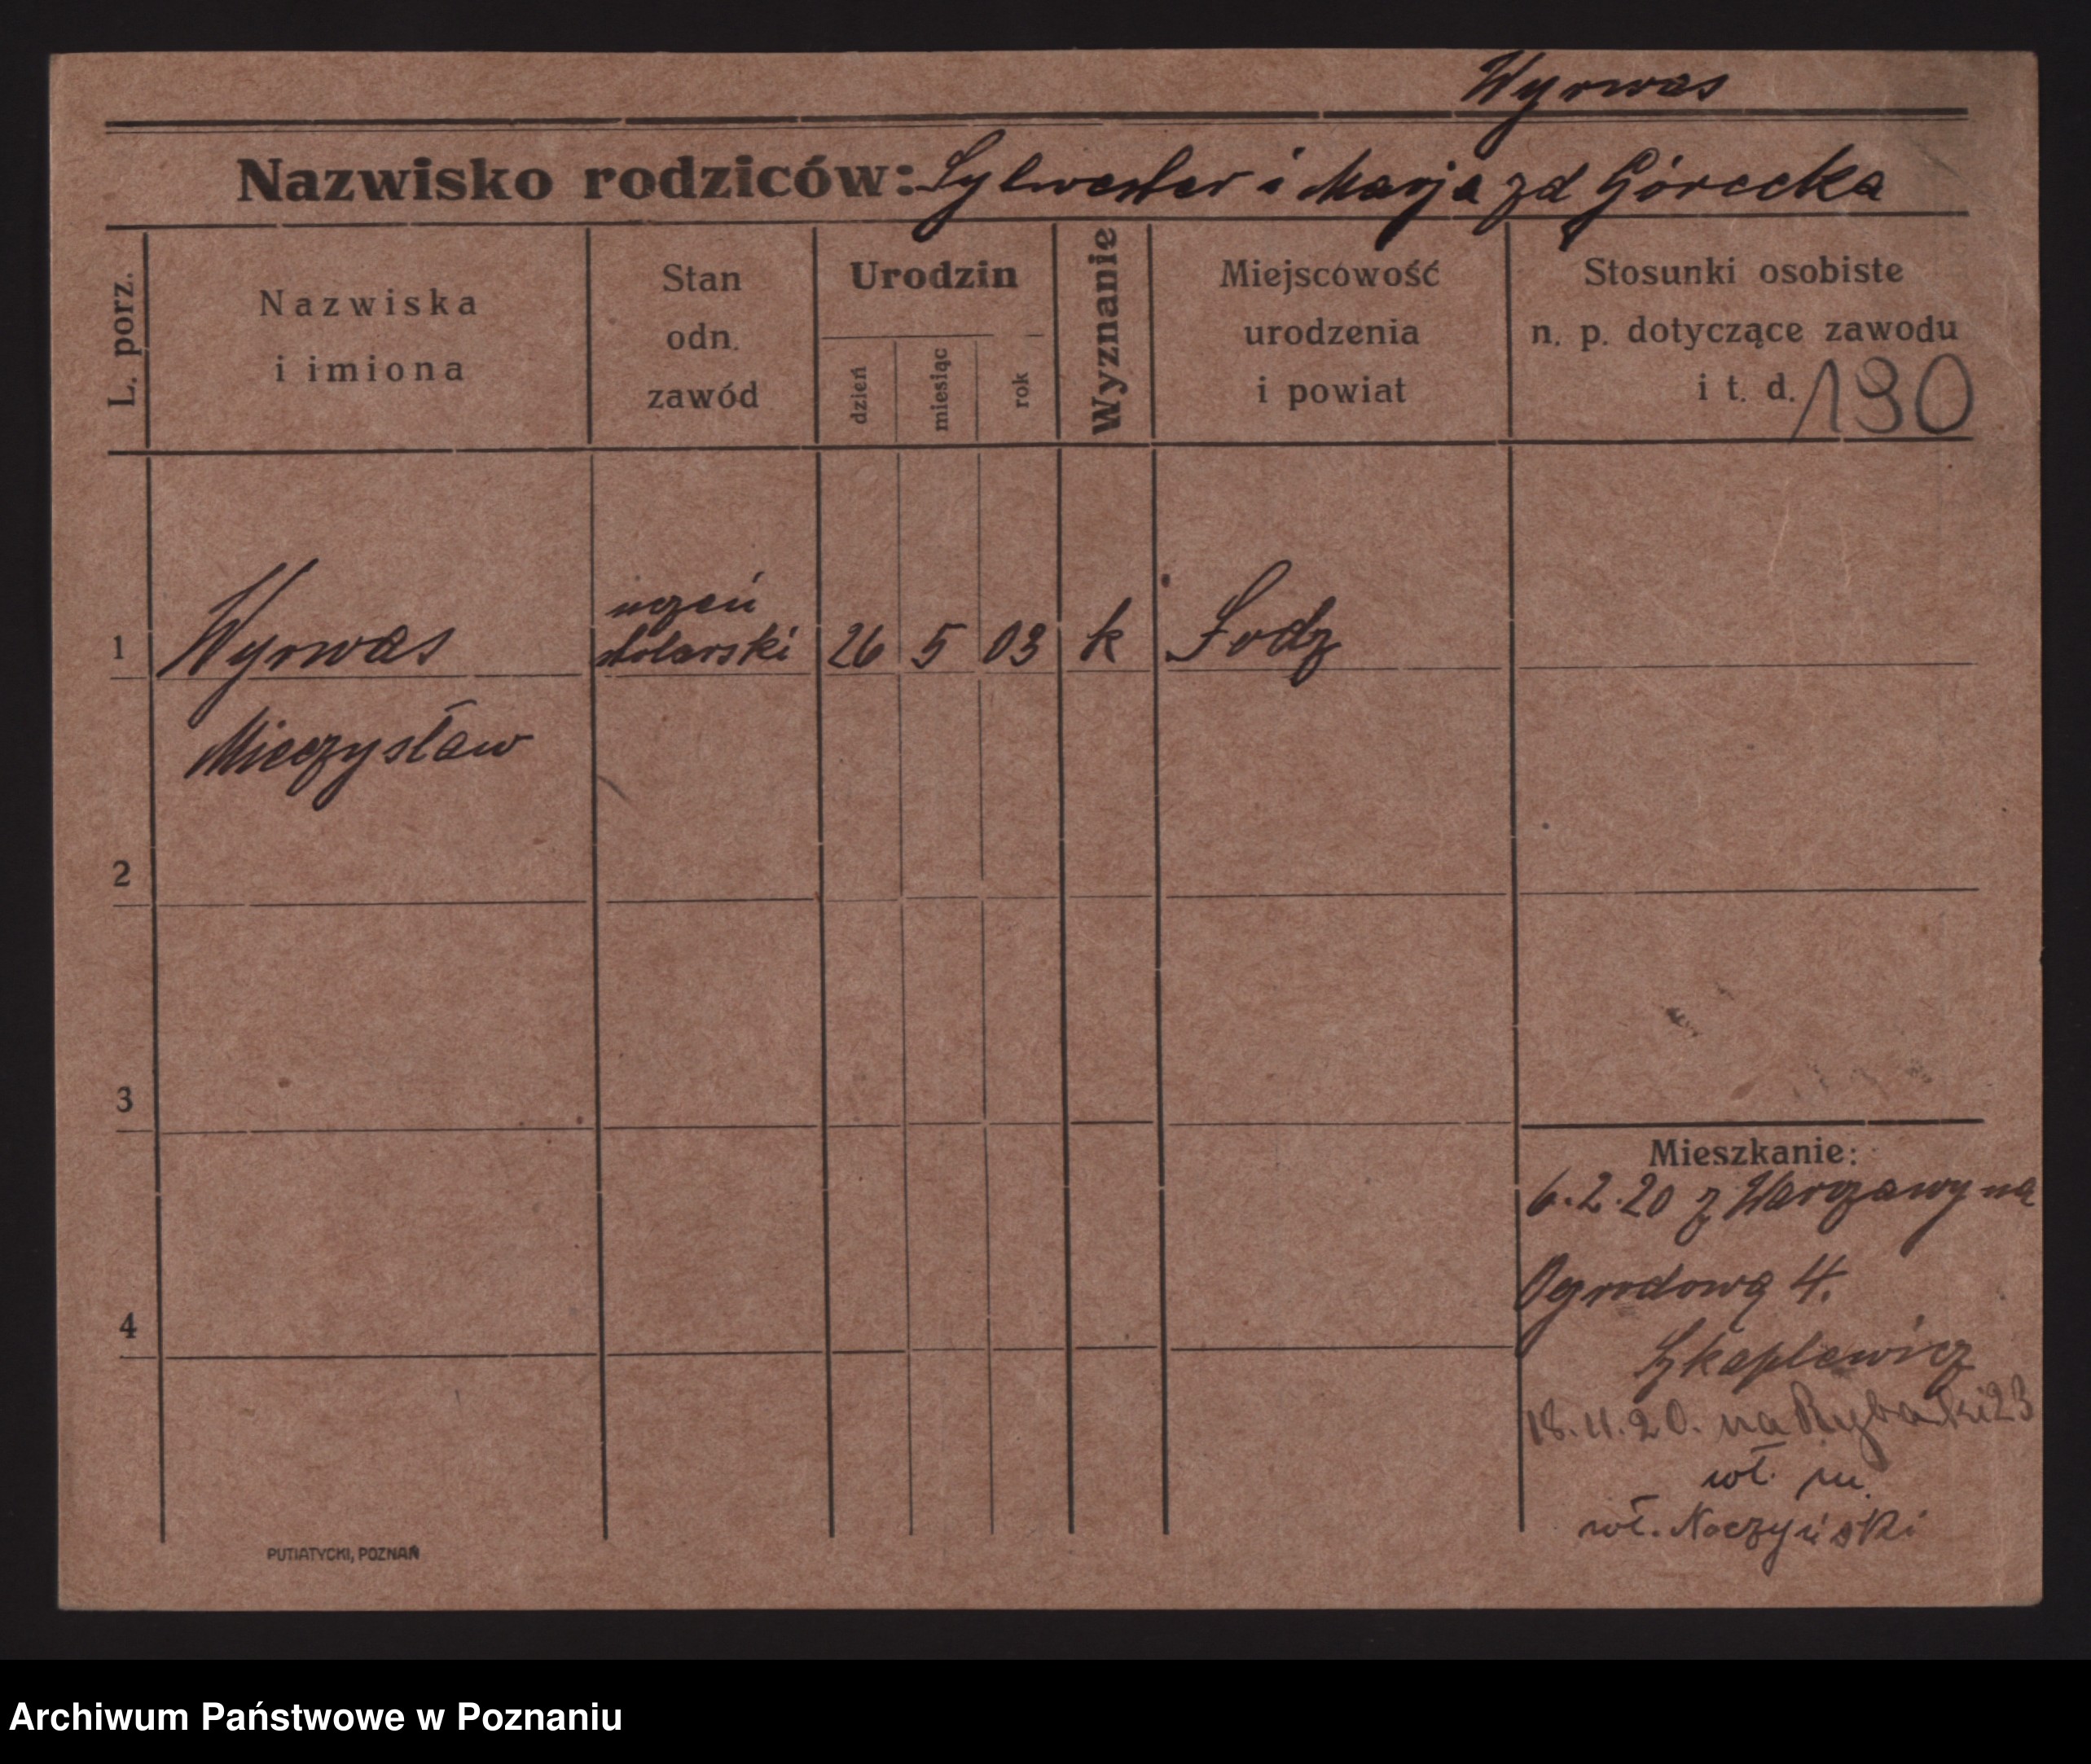 Wyrwas
Nazwisko rodziców: Sylwester i Marja zd Górecka
L. porz.
Nazwiska
i imiona
Stan
odn.
zawód
Urodzin
dzień
miesiąc
rok
Wyznanie
Miejscowość
urodzenia
i powiat
Stosunki osobiste
n. p. dotyczące zawodu
i t. d. 190
uczeń
1 Wyrwas stolarski 26 5 03 k Łodz
Mieczysław
2
3
4
Mieszkanie:
6.2.20 z Warszawy na
Ogrodową 4.
Szkaplewicz
18.11.20. na Rybaki 23
wł.
wł. Noczyński
PUTIATYCKI, POZNAŃ
Archiwum Państwowe w Poznaniu